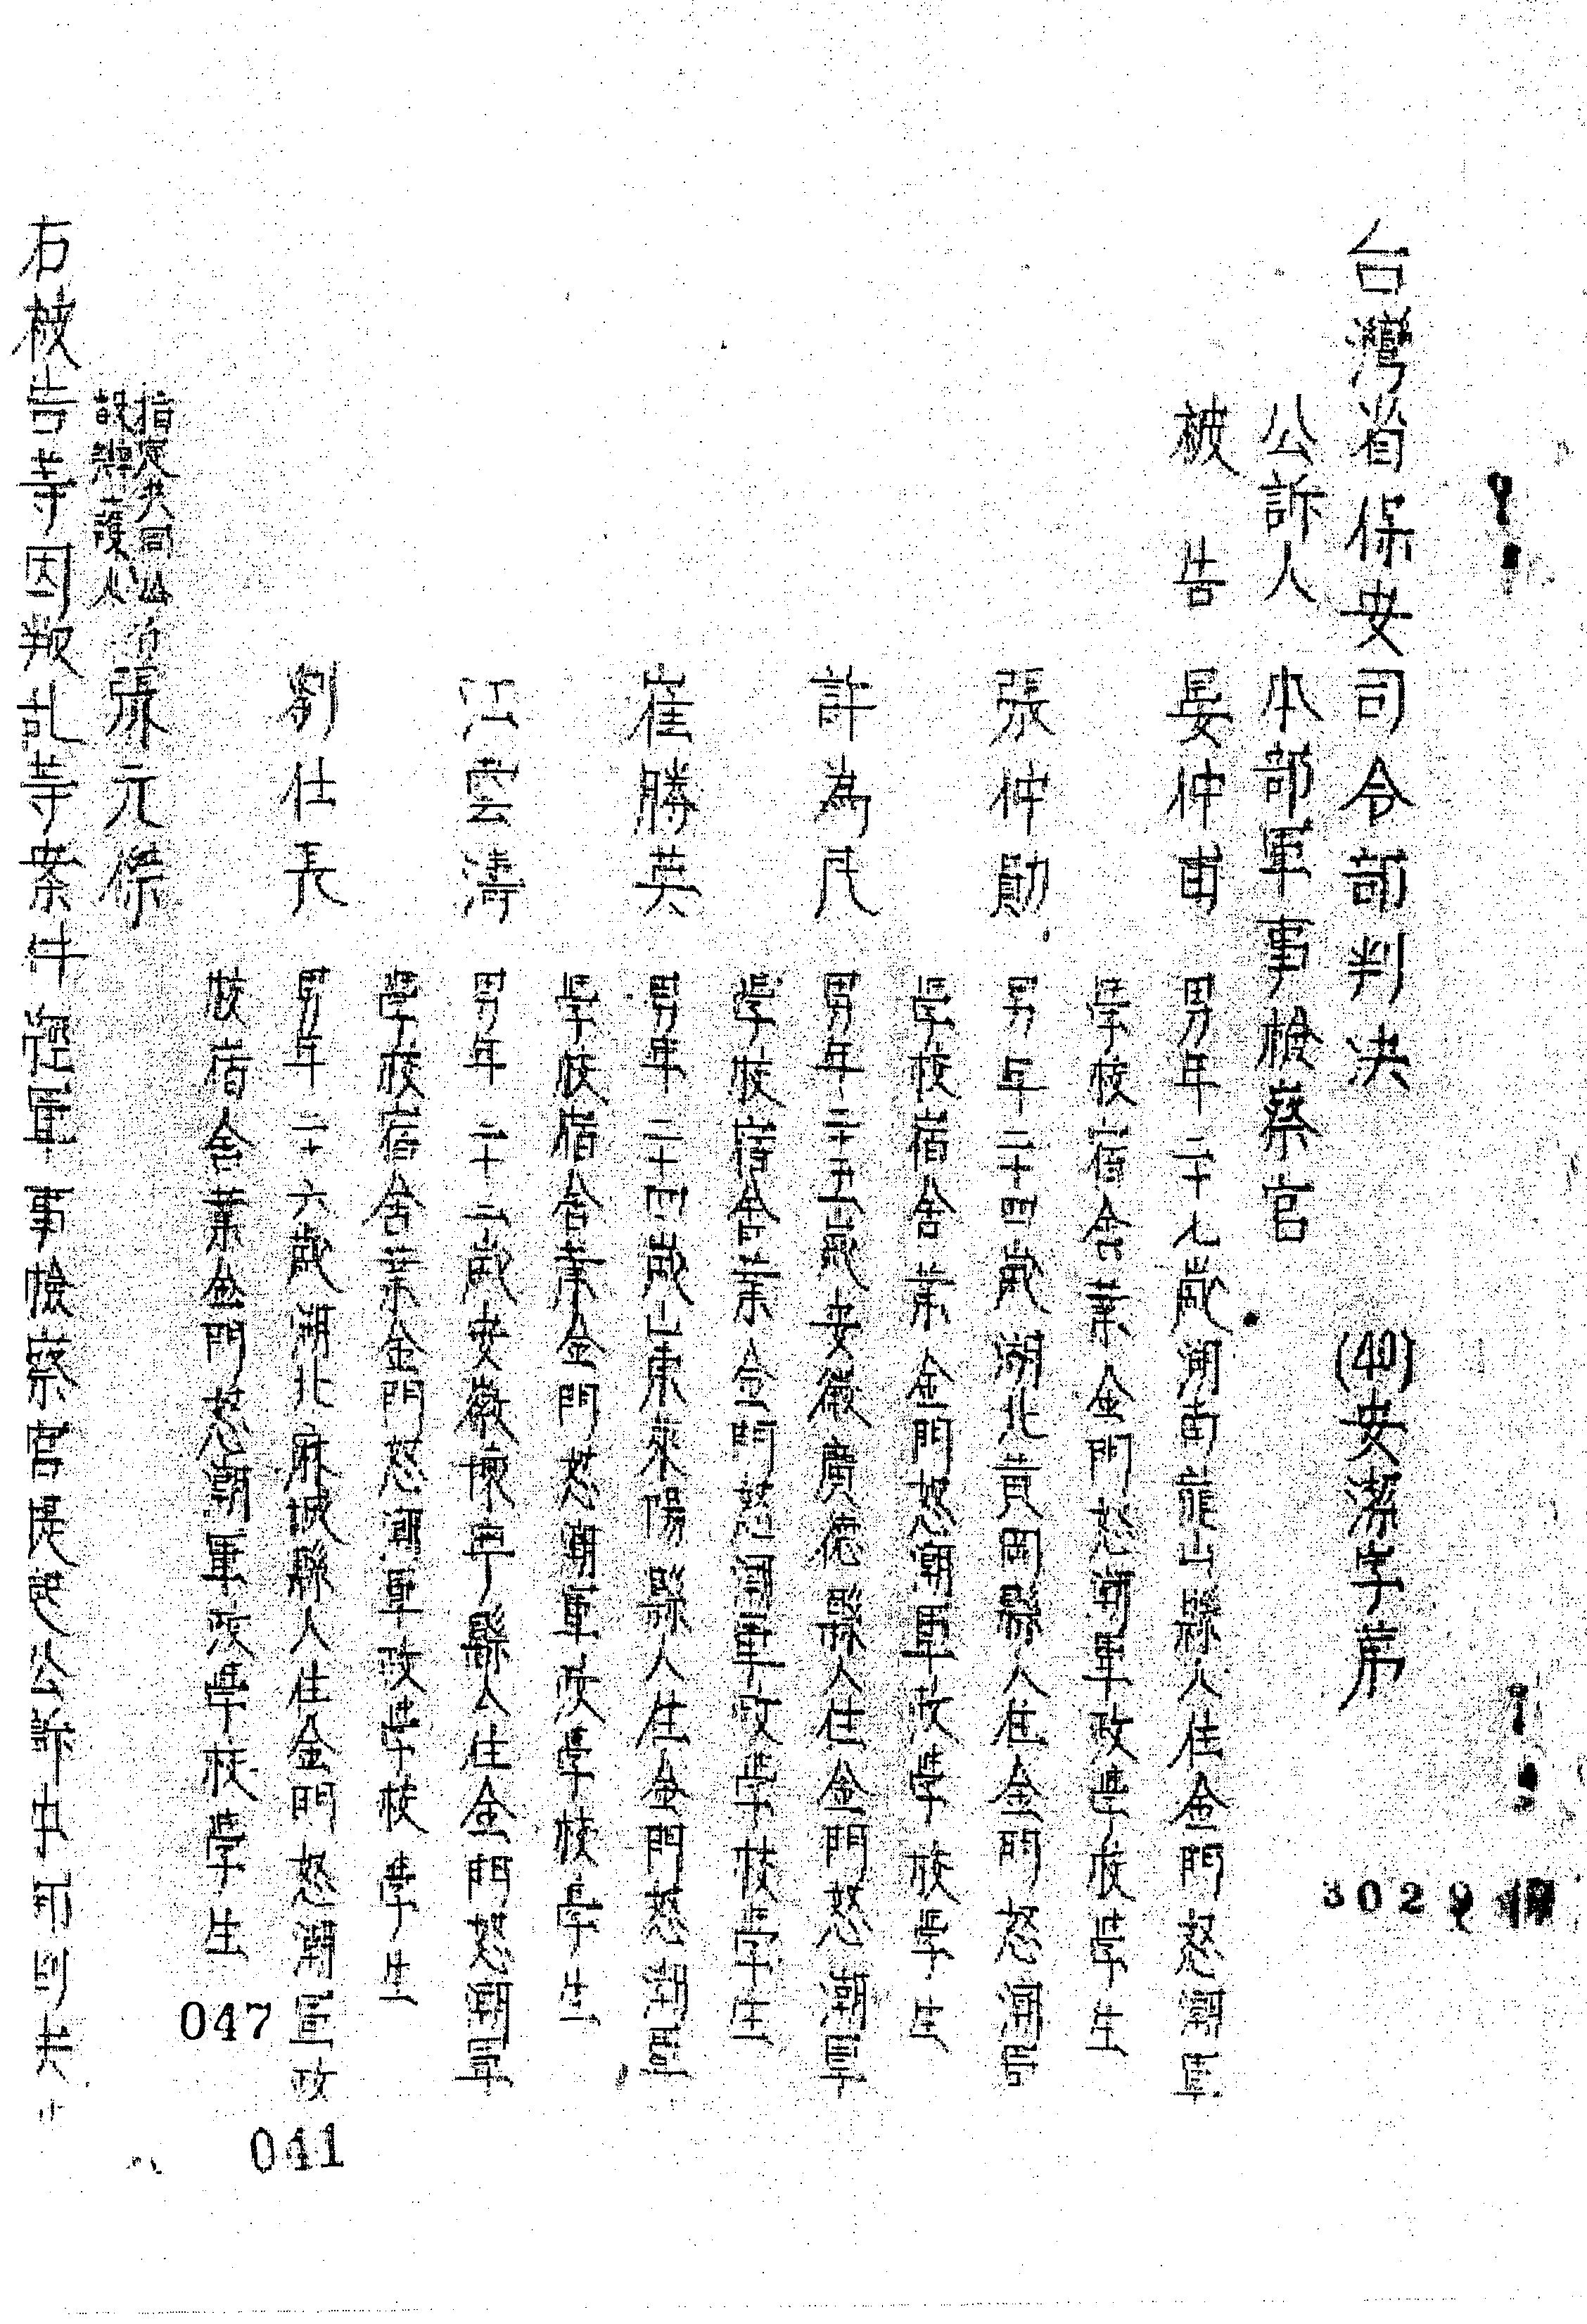 台灣省保安司令部判決 (40)安潔字第
3029
公訴人 本部軍事檢察官
被告 晏仲甫 男年二十七歲湖南龍山縣人住金門怒潮軍
學校宿舍業金門怒潮軍政學校學生
張仲勛 男年二十四歲湖北黃岡縣人住金門怒潮軍
學校宿舍業金門怒潮軍政學校學生
許為民 男年二十五歲安徽廣德縣人住金門怒潮軍
學校宿舍業金門怒潮軍政學校學生
崔勝英 男年二十四歲山東萊陽縣人住金門怒潮軍
學校宿舍業金門怒潮軍政學校學生
江雲濤 男年二十二歲安徽懷寧縣人住金門怒潮軍
學校宿舍業金門怒潮軍政學校學生
劉仕長 男年二十六歲湖北麻城縣人住金門怒潮軍政
校宿舍業金門怒潮軍政學校學生
指定共同公
設辯護人 張元傑
右被告等因叛亂等案件經軍事檢察官提起公訴本部
047
041